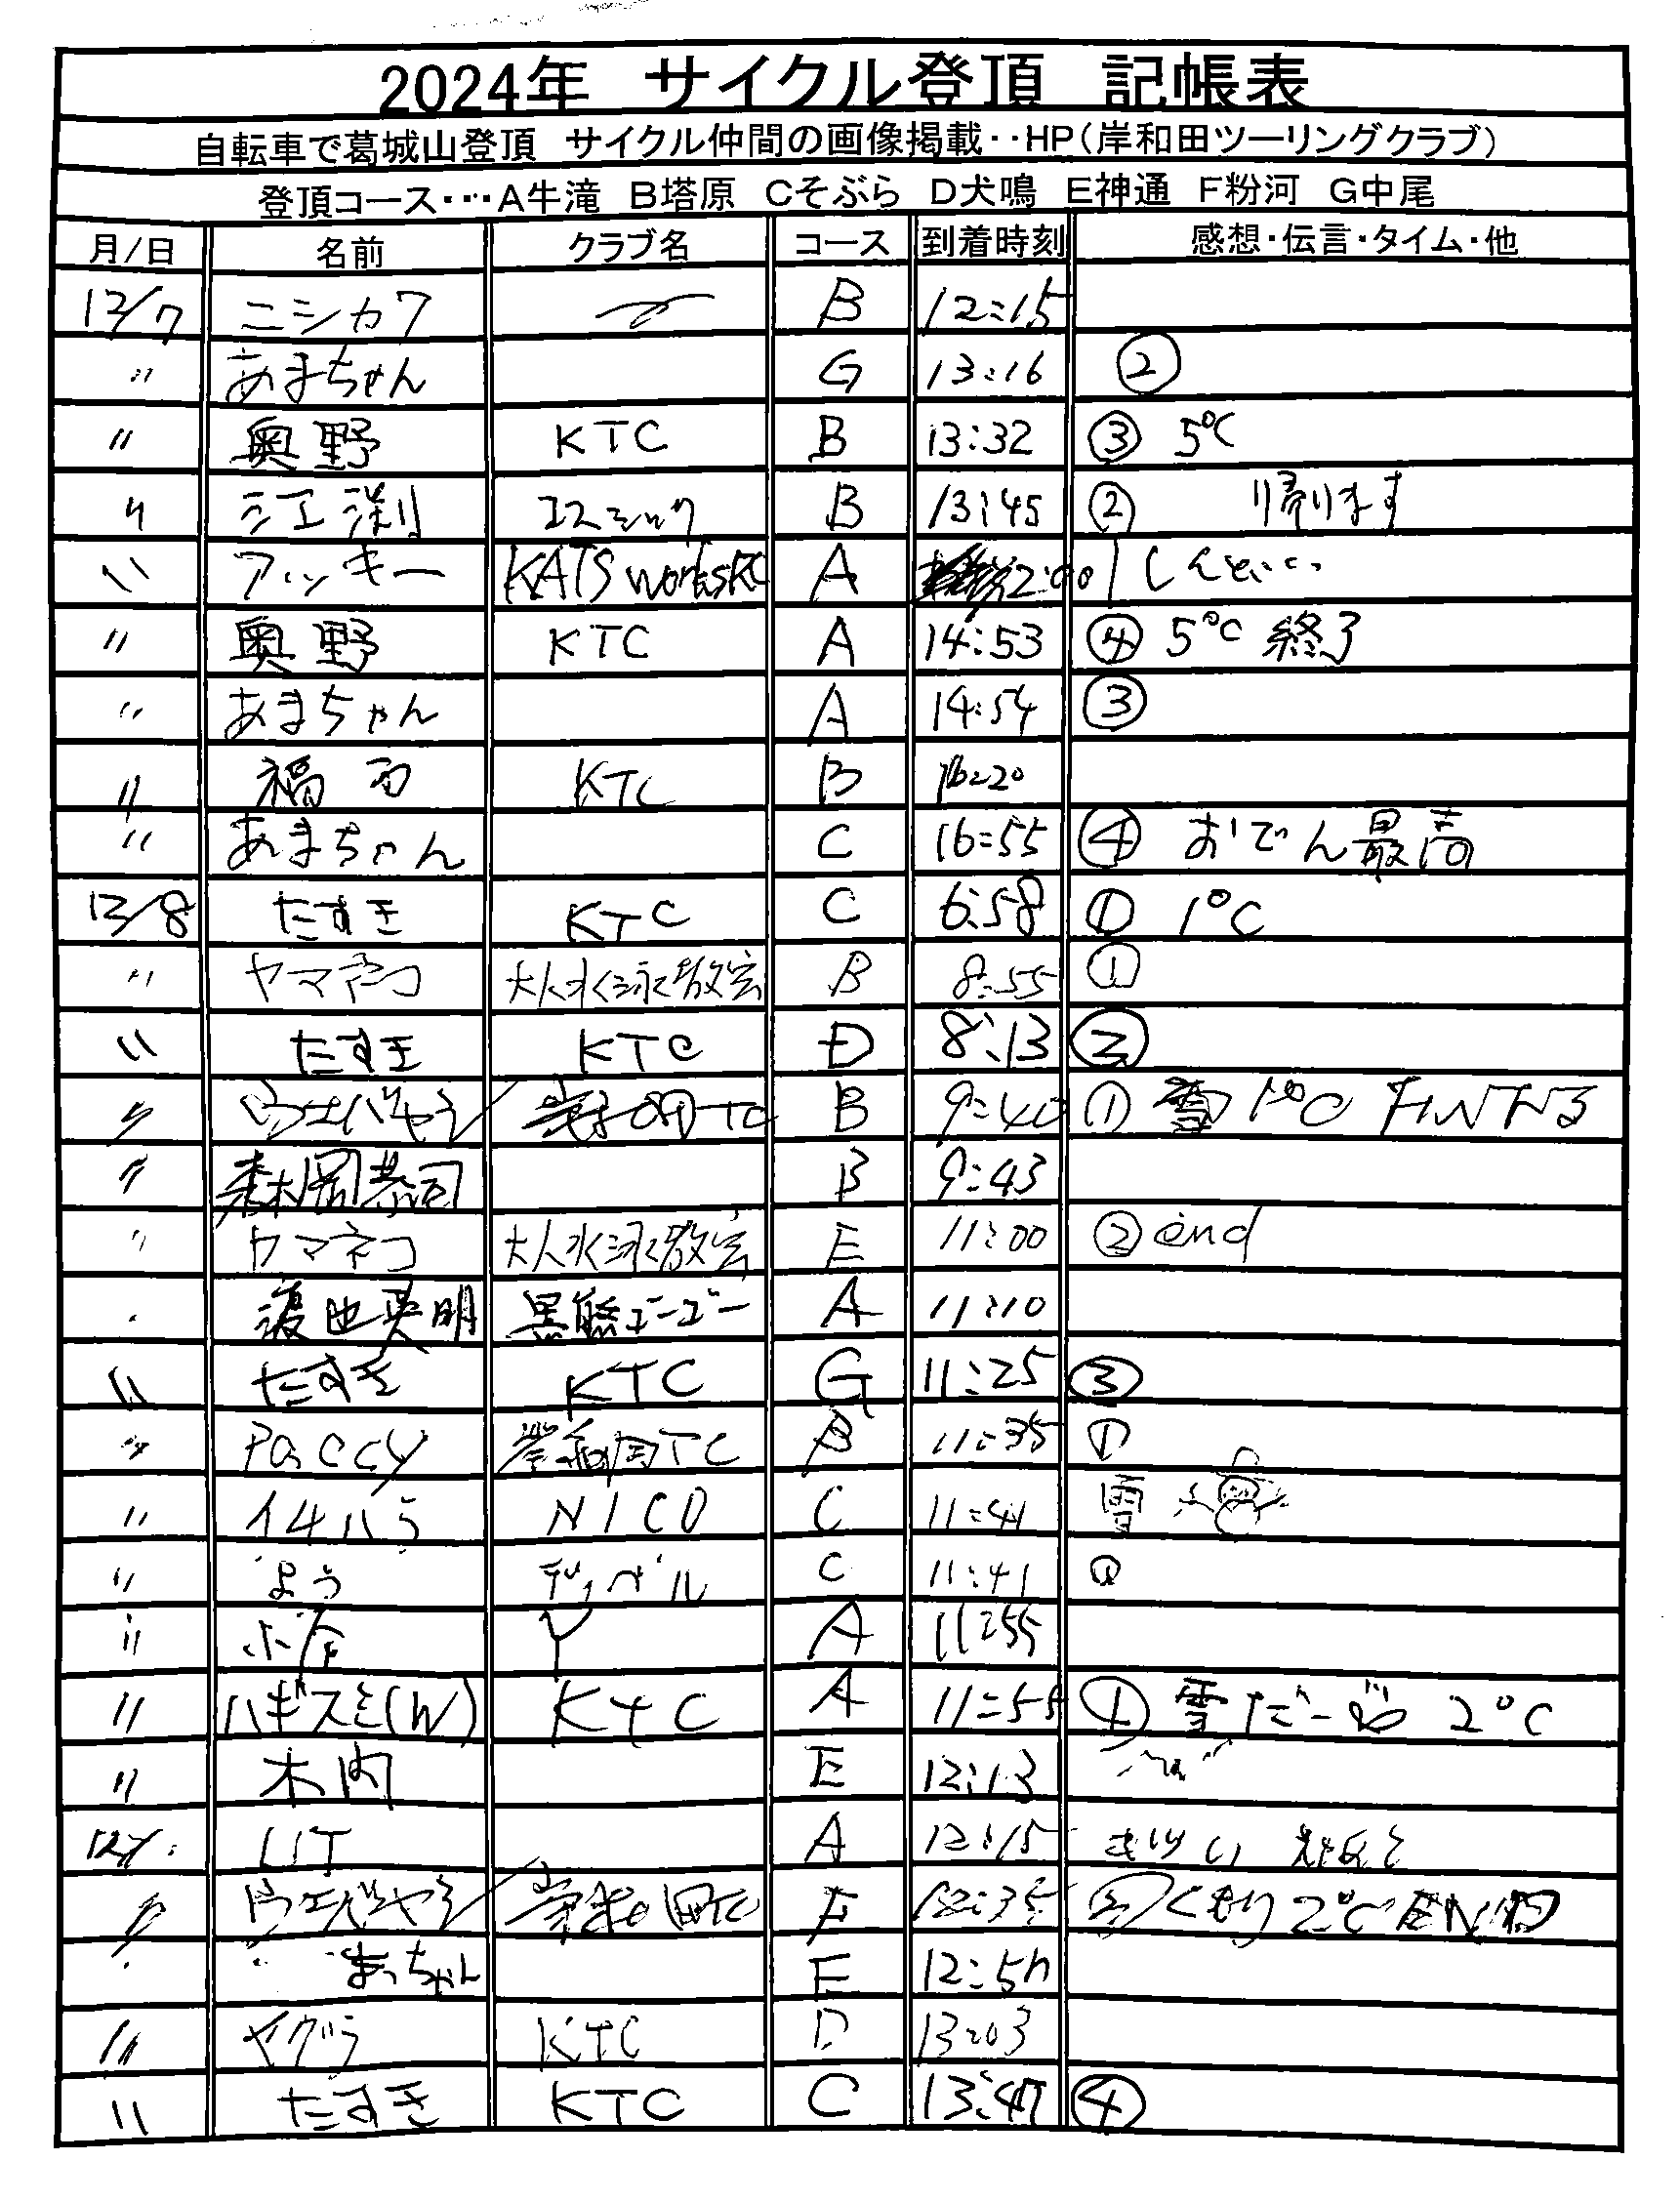 2024年 サイクル登頂 記帳表
自転車で葛城山登頂 サイクル仲間の画像掲載‥HP(岸和田ツーリングクラブ)
登頂コース‥‥A牛滝 B塔原 Cそぶら D犬鳴 E神通 F粉河 G中尾
月/日 名前 クラブ名 コース 到着時刻 感想・伝言・タイム・他
12/7 ニシカワ B 12:15
〃 あまちゃん G 13:16 ②
〃 奥野 KTC B 13:32 ③ 5℃
〃 江渕 B 13:45 ② 帰ります
〃 アッキー KATS works RC A 2:00 しんどい
〃 奥野 KTC A 14:53 ④ 5℃ 終了
〃 あまちゃん A 14:54 ③
〃 KTC B 16:20
〃 あまちゃん C 16:55 ④ おでん最高
12/8 たすき KTC C 6:58 ① 1℃
〃 ヤマネコ 大人水泳教室 B 8:55 ①
〃 たすき KTC D 8:13 ②
〃 岸和田TC B 9:40 ① 雪 1℃
〃 森岡恭司 B 9:43
〃 ヤマネコ 大人水泳教室 E 11:00 ② end
渡辺英明 黒熊ゴーゴー A 11:10
〃 たすき KTC G 11:25 ③
〃 Paccy 岸和田TC B 11:35 ①
〃 イケハラ NICO C 11:41 雪
〃 よう C 11:41
〃 A 11:55
〃 ハギスミ(W) KTC A 11:55 ① 雪だー 2℃
〃 木内 E 12:13
A 12:15
〃 岸和田TC F 12:35 ② くもり 2℃ END
まっちゃん E
〃 ヤグラ KTC D 13:03
〃 たすき KTC C 13:47 ④